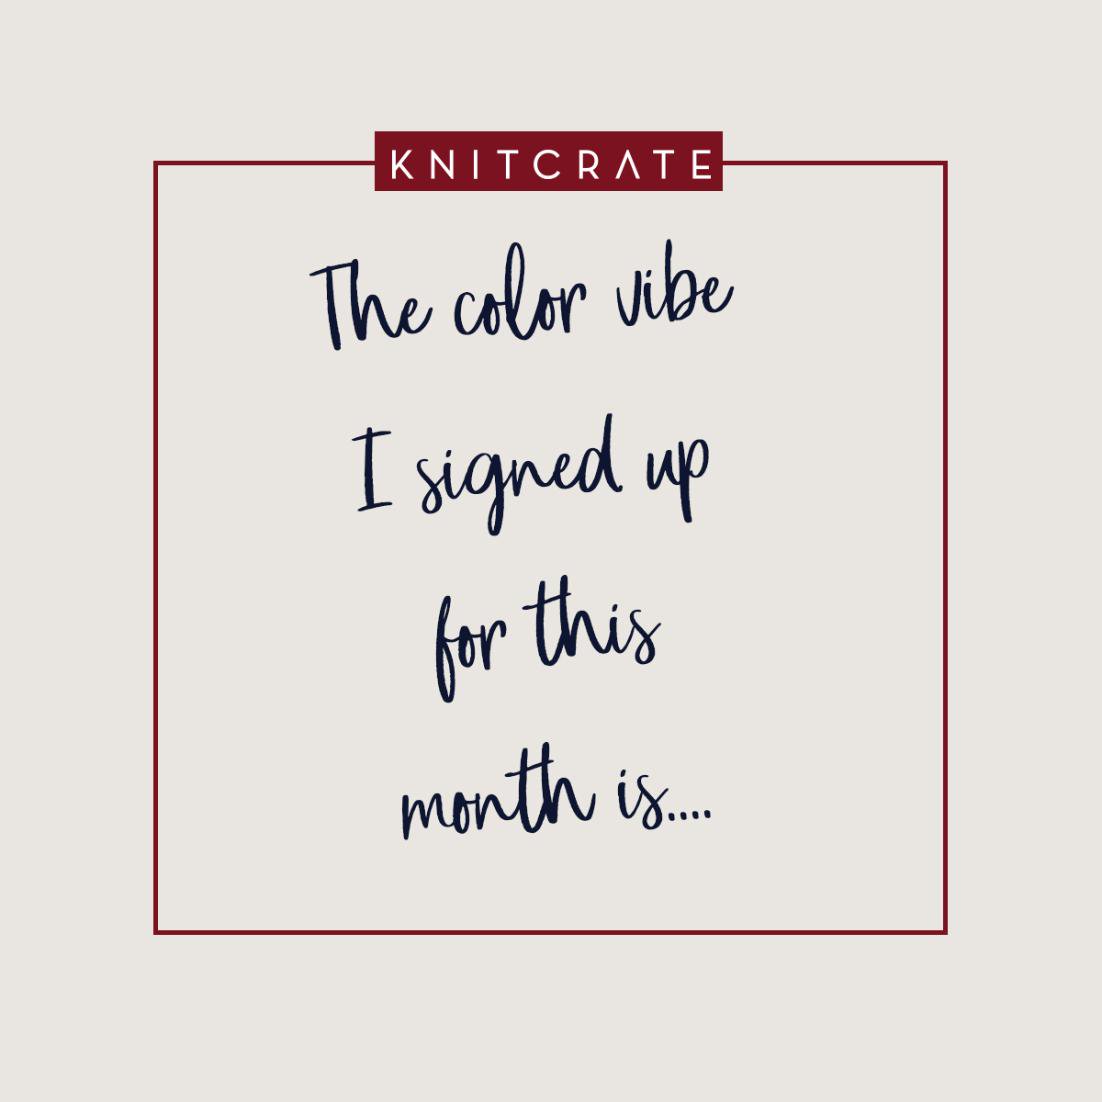 KNITCRATE
The color vibe
I signed up
for this
month is....